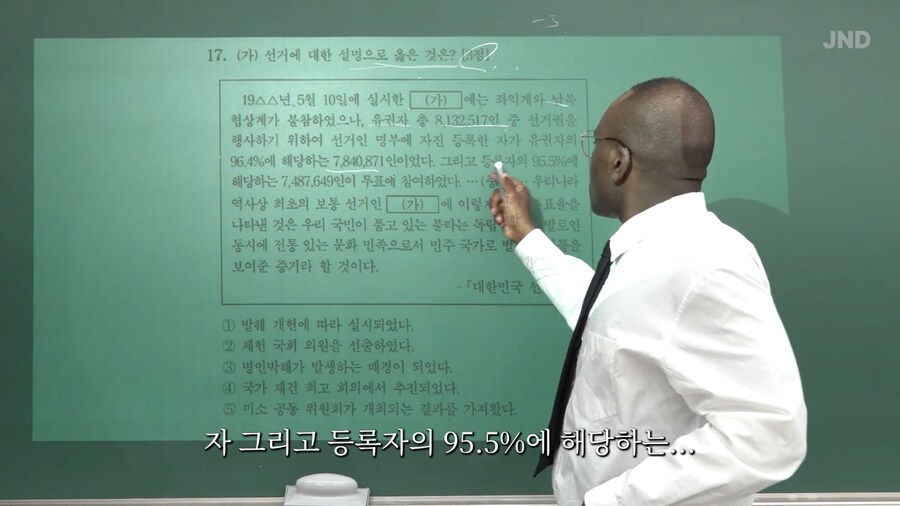 JND
17. (가) 선거에 대한 설명으로 옳은 것은? [3점]
19△△년 5월 10일에 실시한 (가) 에는 좌익계와 남북
협상계가 불참하였으나, 유권자 총 8,132,517인 중 선거권을
행사하기 위하여 선거인 명부에 자진 등록한 자가 유권자의
96.4%에 해당하는 7,840,871인이었다. 그리고 등록자의 95.5%에
해당하는 7,487,649인이 투표에 참여하였다. … 우리나라
역사상 최초의 보통 선거인 (가) 에
나타낸 것은 우리 국민이 품고 있는 불타는
동시에 전통 있는 문화 민족으로서 민주 국가로
보여준 증거라 할 것이다.
-『대한민국
① 발췌 개헌에 따라 실시되었다.
② 제헌 국회 의원을 선출하였다.
③ 병인박해가 발생하는 배경이 되었다.
④ 국가 재건 최고 회의에서 추진되었다.
⑤ 미소 공동 위원회가 개최되는 결과를 가져왔다.
자 그리고 등록자의 95.5%에 해당하는...